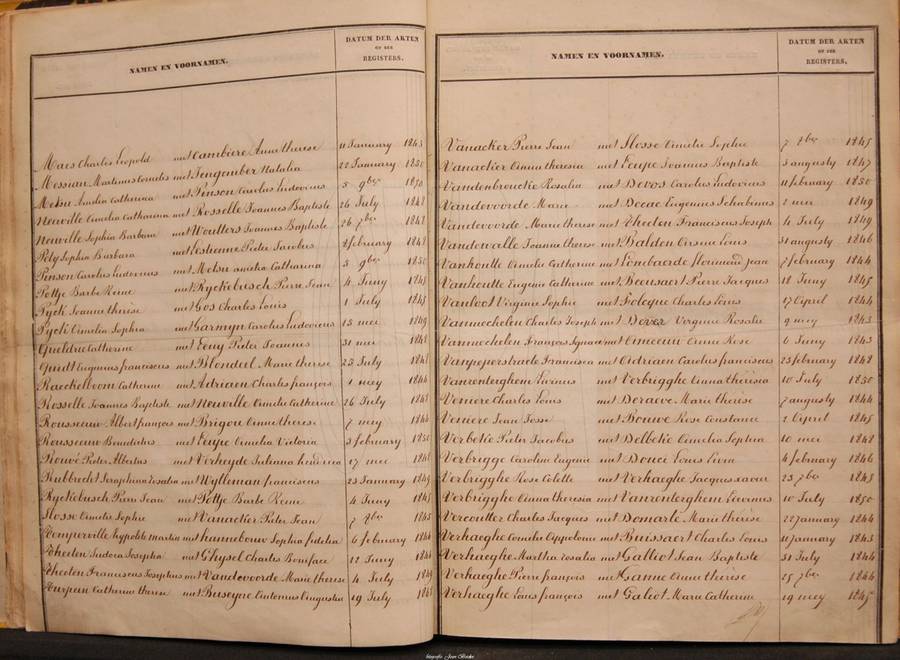 NAMEN EN VOORNAMEN.
DATUM DER AKTEN
OF DER
REGISTERS.
Maes Charles Leopold met Cambiere Anne therese 11 January 1843
Messian Martinus Cornelis met Tengember Natalia 22 January 1850
Melsu Amelia Catharina met Pinson Carolus Ludovicus 5 9ber 1850
Neuville Amelia Catharina met Rosselle Joannes Baptiste 26 July 1848
Neuville Sophia Barbara met Woulters Joannes Baptiste 26 7ber 1848
Poly Sophia Barbara met Lestienne Pieter Jacobus 8 february 1848
Pinson Carolus Ludovicus met Melsu amelia Catharina 5 9ber 1850
Pottje Barbe Reine met Ryckebusch Pierre Jean 4 Juny 1845
Pyck Jeanne thérèse met Gos Charles Louis 1 July 1845
Pyck Amelia Sophia met Garmyn Carolus Ludovicus 15 mei 1849
Queldru Catherine met Feuy Pieter Joannes 31 mei 1848
Quidt Eugenius franciscus met Blondeel Marie therese 25 July 1848
Raeckelboom Catherine met Adriaen Charles françois 1 mey 1844
Rosselle Joannes Baptiste met Neuville Amelie Catherine 26 July 1848
Rousseau Albert françois met Brigou Anne therese 7 mey 1844
Rousseuw Benedictus met Leupe Amelia Victoria 5 february 1850
Rouvé Pieter Albertus met Verheyde Juliana 17 mei 1848
Rubbrecht Seraphina Rosalia met Wylleman franciscus 25 January 1848
Ryckebusch Pierre Jean met Pottje Barbe Reine 4 Juny 1845
Slosse Amelie Sophie met Vanacker Pieter Jean 7 8ber 1845
hypolite martin met hannebouw Sophia fidelia 6 february 1844
Theeten Isidora Josepha met Ghysel Charles Boniface 12 Juny 1844
Theeten Franciscus Josephus met Vandevoorde Marie therese 4 July 1849
Turpun Catherine therese met Buseyne Antonius Augustin 19 July 1848
NAMEN EN VOORNAMEN.
DATUM DER AKTEN
OF DER
REGISTERS.
Vanacker Pierre Jean met Slosse Amelie Sophie 7 8ber 1845
Vanacker Anna theresia met Leupe Joannes Baptiste 5 augusty 1847
Vandenbroucke Rosalia met Devos Carolus Ludovicus 11 february 1850
Vandevoorde Marie met Decae Eugenius 2 mei 1849
Vandevoorde Marie therese met Theeten Franciscus Joseph 4 July 1849
Vandewalle Joanna therese met Balden Louis 31 augusty 1846
Vanhoutte Amelie Catherine met Lombaerde florimond jean 7 february 1844
Vanhoutte Eugenie Catherine met Beeusaert Pierre Jacques 18 Juny 1845
Vanloot Virginie Sophie met Folcque Charles Louis 17 April 1844
Vanmechelen Charles Joseph met Dever Virginie Rosalie 9 mey 1843
Vanmechelen François Ignace met Ameeuw Anne Rose 6 Juny 1843
Vanpeperstraete Francisca met Adriaen Carolus franciscus 25 february 1848
Vanrenterghem Livinus met Verbrigghe Anna thérésia 10 July 1850
Veniere Charles Louis met Deraeve Marie therese 7 augusty 1844
Veniere Jean Josse met Bouve Rose Constance 2 April 1845
Verbeke Pieter Jacobus met Delbeke Amelia Sophia 10 mei 1848
Verbrigge Caroline Eugenie met Douci Louis Livin 4 february 1846
Verbrigghe Rose Colette met Verhaeghe Jacques xavier 25 7ber 1843
Verbrigghe Anna theresia met Vanrenterghem Livinus 10 July 1850
Vercoutter Charles Jacques met Domarle Marie thérèse 22 January 1844
Verhaeghe Cornelie Appolonie met Buissaert Charles Louis 11 January 1843
Verhaeghe Martha rosalia met Galliot Jean Baptiste 31 July 1844
Verhaeghe Pierre françois met Hanne Anne thérèse 25 7ber 1844
Verhaeghe Louis françois met Galiot Marie Catherine 19 mey 1845